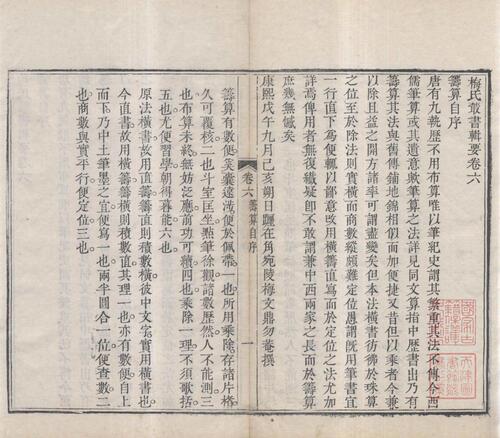 梅氏叢書輯要卷六
籌算自序
唐有九執歷不用布算唯以筆紀史謂其繁重其法不傳今西
儒筆算或其遺意歟筆算之法詳見同文算指中歷書出乃有
籌算其法與舊傳鋪地錦相似而加便捷又昔但以乘者今兼
以除且益之開方諸率可謂盡變矣但本法橫書彷彿於珠算
之位至於除法則實橫而商數縱頗難定位愚謂既用筆書宜
一行直下為便輒以鄙意改用橫籌直寫而於定位之法尤加
詳焉俾用者無復纖疑即不敢謂兼中西兩家之長而於籌算
庶幾無憾矣
康熙戊午九月己亥朔日躔在角宛陵梅文鼎勿菴撰
卷六 籌算自序 一
籌算有數便奚囊遠涉便於佩帶一也所用乘除存諸片楮
久可覆核二也斗室匡坐點筆徐觀諸數歷然人不能測三
也布算未終無妨泛應前功可續四也乘除一理不須歌括
五也尤便習學朝得暮能六也
原法橫書故用直籌籌直則積數橫彼中文字實用橫書也
今直書故用橫籌籌橫則積數直其理一也亦有數便自上
而下乃中土筆墨之宜便寫一也兩半圓合一位便查數二
也商數與實平行便定位三也